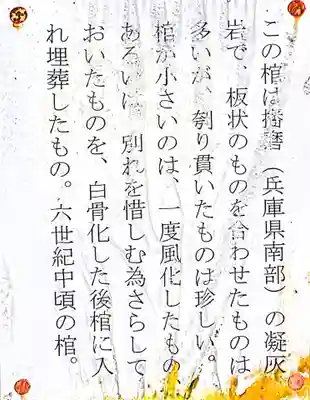 この棺は播磨（兵庫県南部）の凝灰
岩で、板状のものを合わせたものは
多いが、刳り貫いたものは珍しい。
棺が小さいのは、一度風化したもの
あるいは、別れを惜しむ為さらして
おいたものを、白骨化した後棺に入
れ埋葬したもの。六世紀中頃の棺。